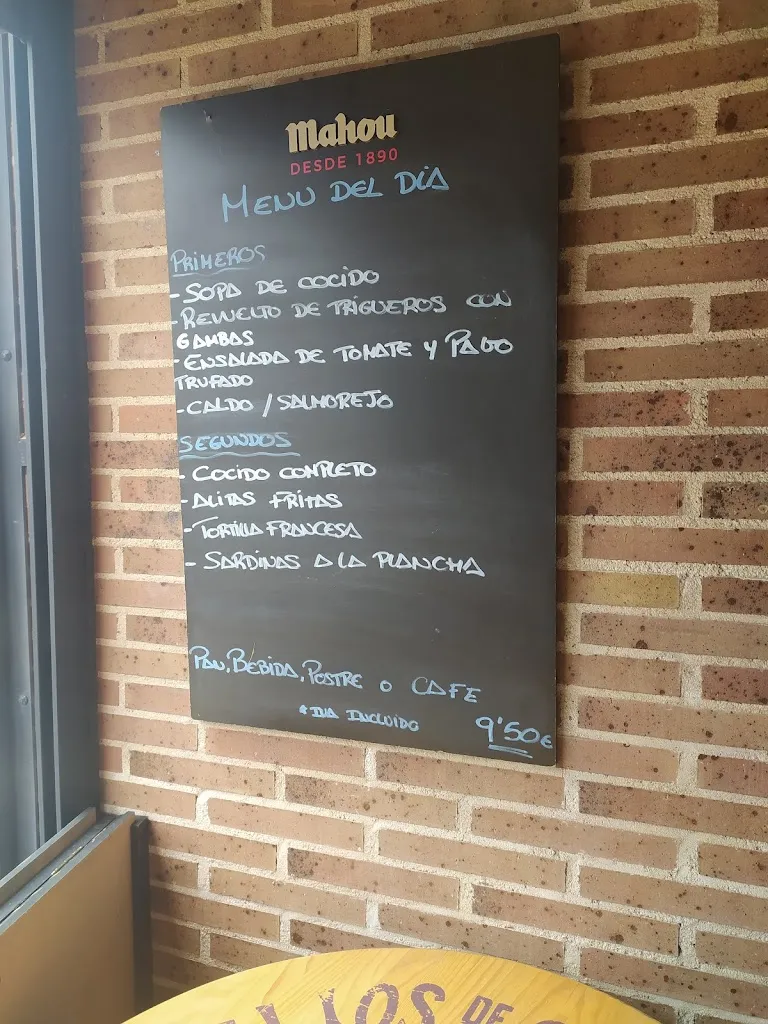 Mahou
DESDE 1890
MENU DEL DIA
PRIMEROS
- SOPA DE COCIDO
- REVUELTO DE TRIGUEROS CON
GAMBAS
- ENSALADA DE TOMATE Y PAVO
TRUFADO
- CALDO / SALMOREJO
SEGUNDOS
- COCIDO COMPLETO
- ALITAS FRITAS
- TORTILLA FRANCESA
- SARDINAS A LA PLANCHA
PAN, BEBIDA, POSTRE O CAFE
* IVA INCLUIDO
9'50€
DE